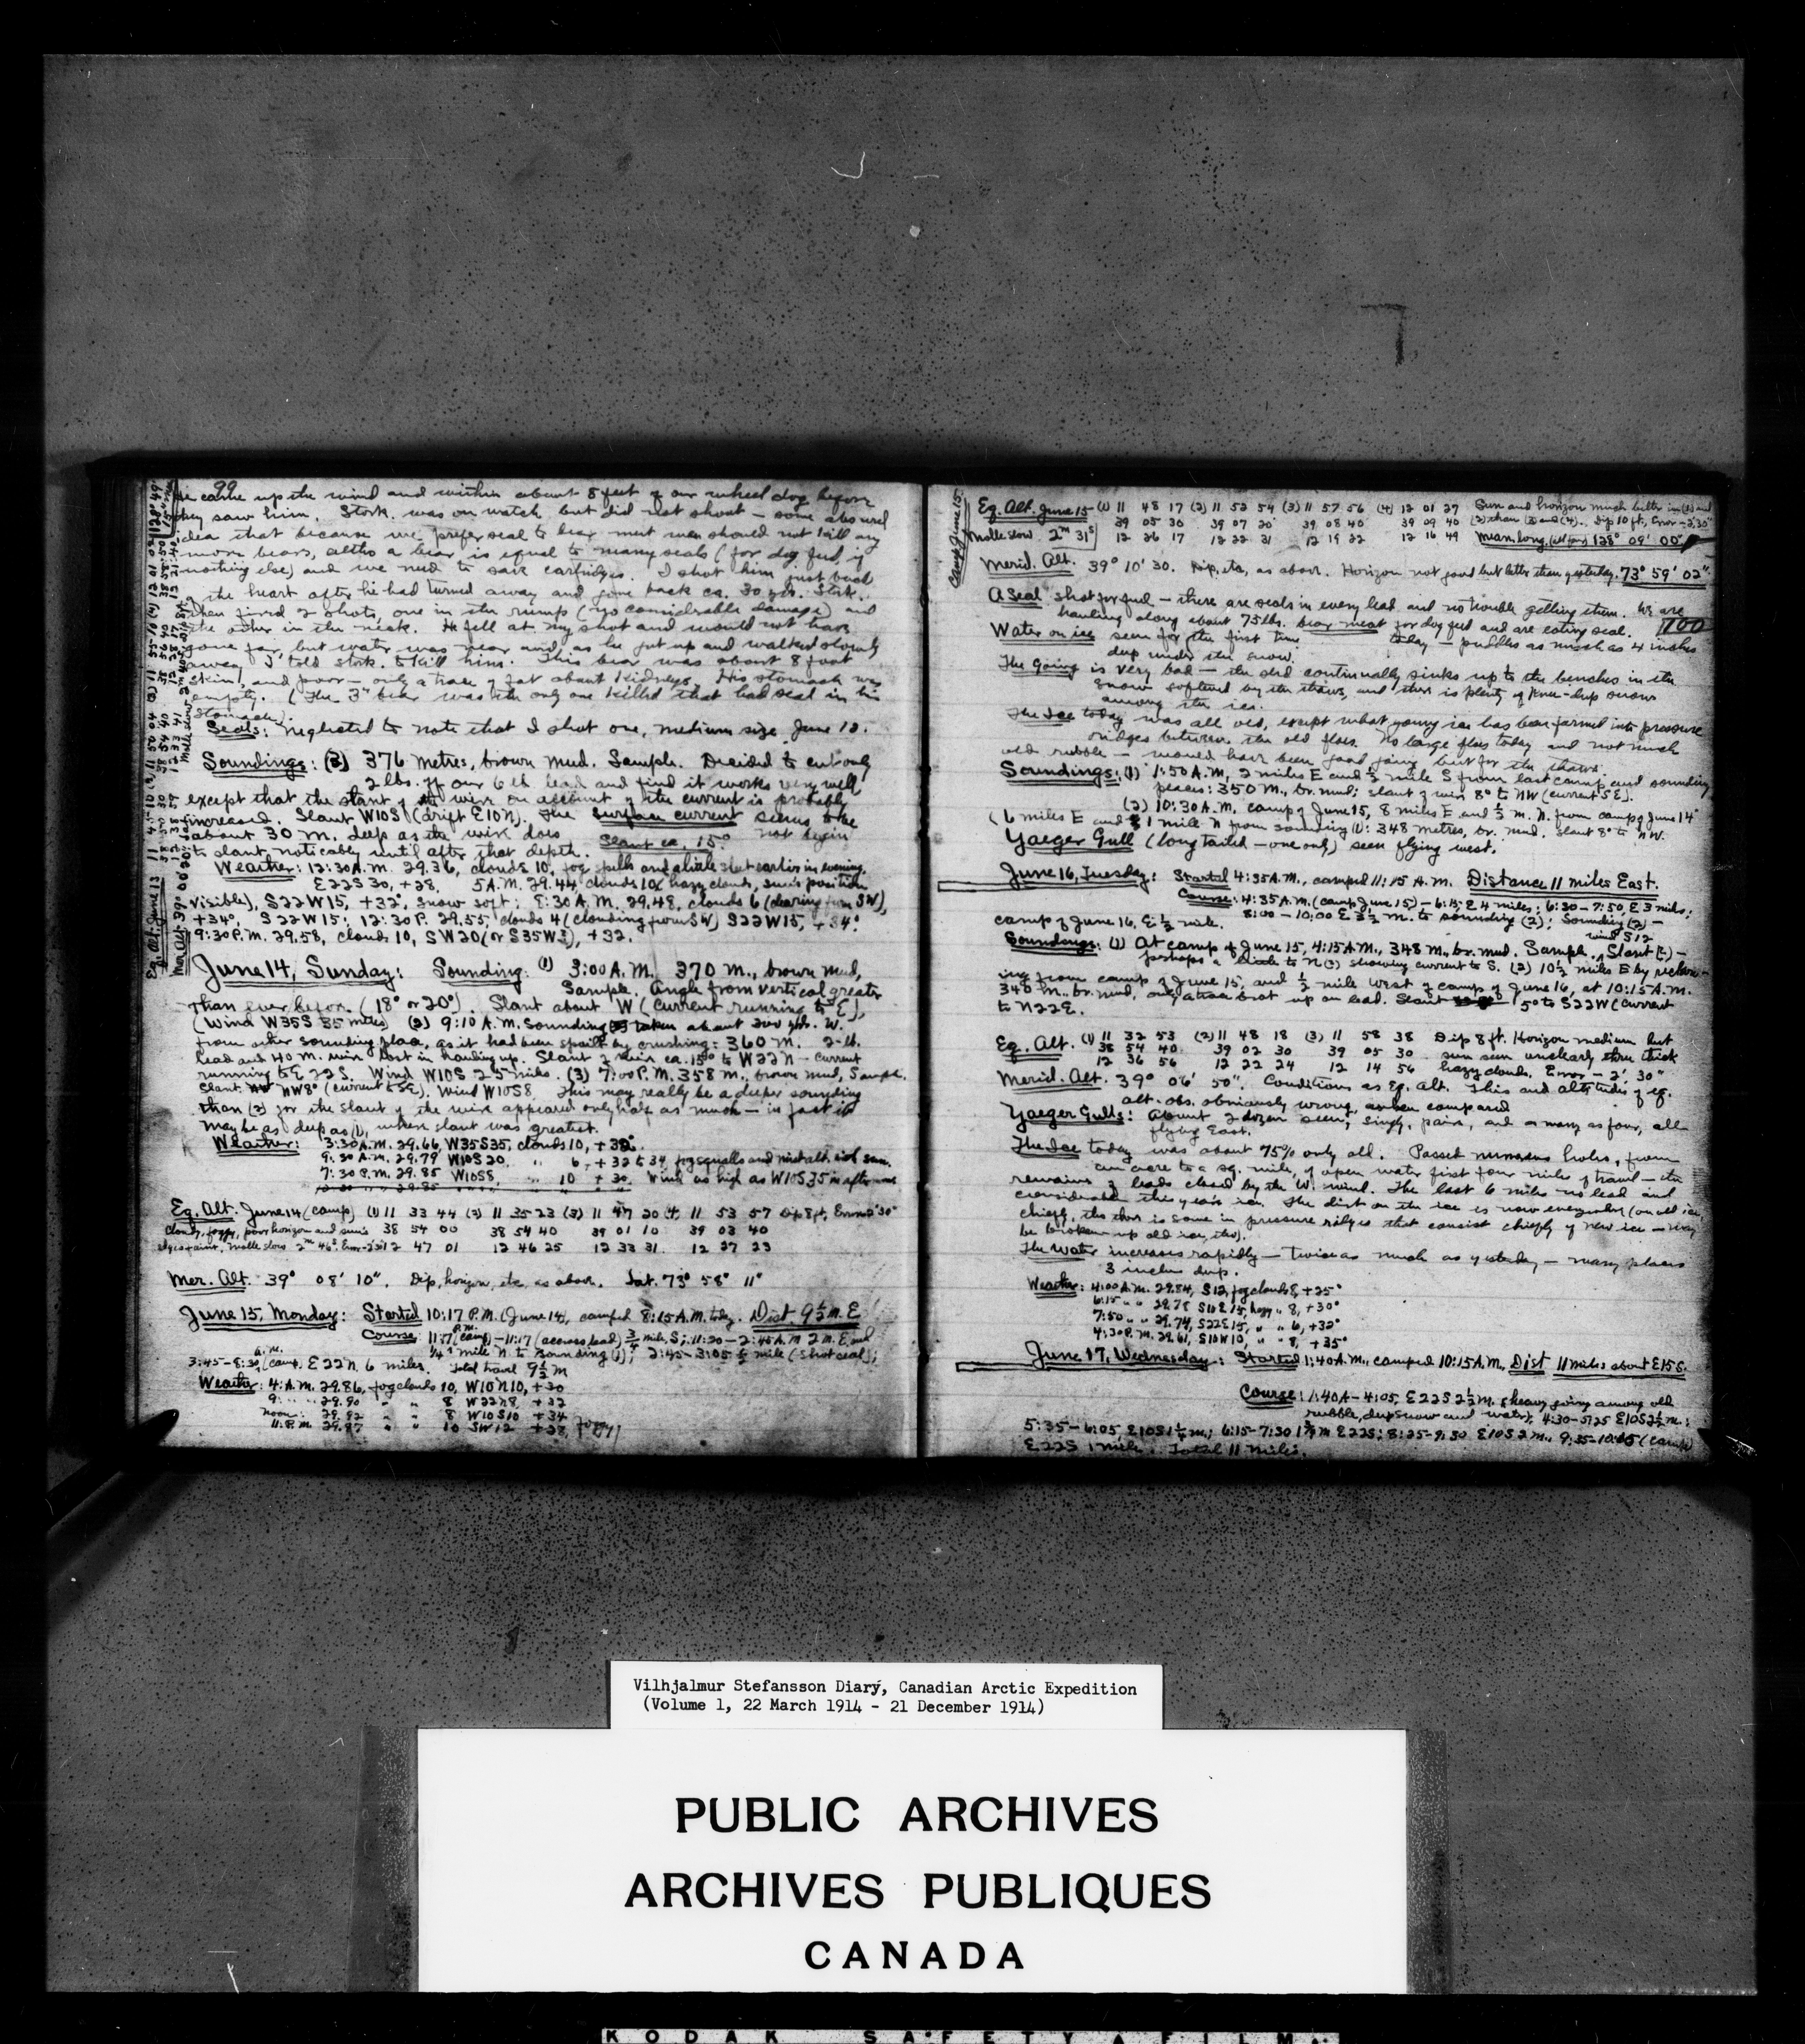 99
He came up the wind and within about 8 feet of our wheel dog before
they saw him. Stork. was on watch but did not shoot – some absurd
idea that because we prefer seal to bear meat we should not kill any
more bears, altho a bear is equal to many seals (for dog feed, if
nothing else) and we need to save cartridges. I shot him just back
of the heart after he had turned away and gone back ca. 30 yds. Stork.
then fired 2 shots, one in the rump (no considerable damage) and
the other in the neck. He fell at my shot and would not have
gone far, but water was near and, as he got up and walked slowly
away I told Stork. to kill him. This bear was about 8 foot
skin, and poor – only a trace of fat about kidneys. His stomach was
empty. (The 3rd bear was the only one killed that had seal in his
stomach).
Seals: neglected to note that I shot one, medium size June 12.
Soundings: (3) 376 metres, brown mud. Sample. Decided to cut only
2 lbs. off our 6 lb lead and find it works very well
except that the slant of the wire on account of the current is probably
increased. Slant W10S (drift E10N). The surface current seems to be
about 30 m. deep as the wire does not begin
to slant noticably until after that depth. Slant ca. 15°
Weather: 12:30 A.M. 29.36, clouds 10, fog earlier in evening.
E22S 30, +28. 5 A.M. 29.44 clouds 10 (hazy clouds, sun's position
visible), S22W15, +32°, snow soft; 8:30 A.M. 29.48, clouds 6 (clearing from SW),
+34°, S22W15; 12:30 P. 29.55, clouds 4 (clouding from SW) S22W15, +34°.
9:30 P.M. 29.58, clouds 10, SW20 (or S35W), +32.
June 14, Sunday: Sounding: (1) 3:00 A.M. 370 m., brown mud,
Sample. Angle from vertical greater
than ever before (18° or 20°). Slant about W (current running to E),
(Wind W35S 35 miles) (2) 9:10 A.M. sounding taken about 200 yds. W.
from other sounding place, as it had been spoilt by crushing: 360 m. 2-lb.
lead and 40 m. wire lost in hauling up. Slant of wire ca. 15° to W22N – current
running to E22S. Wind W10S 25 miles. (3) 7:00 P.M. 358 m., brown mud, Sample.
Slant NW8° (current to SE). Wind W10S8. This may really be a deeper sounding
than (2) for the slant of the wire appeared only half as much – in fact it
may be as deep as (1), when slant was greatest.
Weather: 3:30 A.M. 29.66, W35S35, clouds 10, +32°.
9:30 A.M. 29.79 W10S20, " 6, +32 to 34, fog squalls and
7:30 P.M. 29.85 W10S8, " 10 +30. Wind as high as W10S35 in afternoon
Eq. Alt. June 14 (camp) (1) 11 33 44 (2) 11 35 23 (3) 11 47 20 (4) 11 53 57 Dip 8 ft, Error 2'30"
Cloudy, foggy, poor horizon and sun's 38 54 00 38 54 40 39 01 10 39 03 40
edges faint, Molle slow 2m 46s. 12 47 01 12 46 25 12 33 31 12 27 23
Mer. Alt. 39° 08' 10". Dip, horizon, etc. as above. Lat. 73° 58' 11"
June 15, Monday: Started 10:17 P.M. (June 14), camped 8:15 A.M. today. Dist. 9½ m. E
Course: 11:17 (across lead) ¾ mile S; 11:20 – 2:45 A.M. 2 m. E and
¼ mile N to Sounding (1); 2:45–3:05 ½ mile (shot seal);
3:45–8:30 (camp). E22N. 6 miles. Total travel 9½ m
Weather: 4 A.M. 29.86, fog clouds 10, W10N10, +30
9 " " 29.90 " " 8 W22N8, +32
noon: 29.92 " " 8 W10S10 +34
11 P.M. 29.87 " " 10 SW12 +28, foggy
Camp June 15
Eq. Alt. June 15 (1) 11 48 17 (2) 11 52 54 (3) 11 57 56 (4) 12 01 27 Sun and horizon much better in (1) and
39 05 30 39 07 20 39 08 40 39 09 40 (2) than (3) and (4). Dip 10 ft, Error –2'30"
Molle slow 2m 31s 12 26 17 12 22 31 12 19 22 12 16 49 Mean long. 128° 09' 00"
Merid. Alt. 39° 10' 30. Dip, etc, as above. Horizon not good but better than yesterday. 73° 59' 02"
A Seal shot for food – there are seals in every lead and no trouble getting them. We are
hauling along about 75 lbs. bear meat for dog feed and are eating seal. 100
Water on ice seen for the first time today – puddles as much as 4 inches
deep under the snow.
The Going is very bad – the sled continually sinks up to the benches in the
snow softened by the thaws, and there is plenty of knee-deep snow
among the ice.
The Ice today was all old, except what young ice has been formed into pressure
ridges between the old floes. No large floes today and not much
old rubble – would have been good going but for the thaws.
Soundings: (1) 1:50 A.M. 2 miles E and ½ mile S from last camp and sounding
places: 350 M., br. mud; slant of wire 8° to NW (current SE).
(2) 10:30 A.M. camp of June 15, 8 miles E and ½ m. N. from camp of June 14
(6 miles E and 1 mile N from sounding (1): 348 metres, br. mud, slant 8° to NW.
Yaeger Gull (long tailed – one only) seen flying west.
June 16, Tuesday: Started 4:35 A.M., camped 11:15 A.M. Distance 11 miles East.
Course: 4:35 A.M. (camp June 15) – 6:15, E 4 miles; 6:30 – 7:50, E 3 miles;
8:00 – 10:00 E 3½ m. to sounding (2); Sounding (2) –
camp of June 16, E ½ mile.
Soundings: (1) At camp of June 15, 4:15 A.M., 348 m., br. mud. Sample. wind S12 Slant (?) –
perhaps a to N(?) showing current to S. (2) 10½ miles E by reckon-
ing from camp of June 15, and ½ mile West of camp of June 16, at 10:15 A.M.
340 m., br. mud, only a trace brot up on lead. Slant 5° to S22W (current
to N22E.
Eq. Alt. (1) 11 32 53 (2) 11 48 18 (3) 11 58 38 Dip 8 ft. Horizon medium but
38 54 40 39 02 30 39 05 30 sun seen unclearly thru thick
12 36 56 12 22 24 12 14 56 hazy clouds. Error – 2' 30"
Merid. Alt. 39° 06' 50". Conditions as Eq. Alt. This and altitudes of eq.
alt. obs. obviously wrong, compared
Yaeger Gulls: About 2 dozen seen, singly, pairs, and as many as four, all
flying East.
The Ice today was about 75% only old. Passed numerous holes, from
an acre to a sq. mile, of open water first four miles of travel – the
remains of leads closed by the W. wind. The last 6 miles no lead and
considerable this year's ice. The dirt on the ice is now everywhere (on old ice
chiefly, tho there is some in pressure ridges that consist chiefly of new ice – may
be broken up old ice, tho).
The Water increases rapidly – twice as much as yesterday – many places
3 inches deep.
Weather: 4:00 A.M. 29.84, S12, fog clouds 8, +25°
6:15 " " 29.78 S10E15, hazy " 8, +30°
7:50 " " 29.74, S22E15, " " 6, +32°
4:30 P.M. 29.61, S10W10, " " 8, +35°
June 17, Wednesday: Started 1:40 A.M., camped 10:15 A.M., Dist 11 miles about E15S.
Course: 1:40A – 4:05, E22S 2½ m. (heavy going among old
rubble, deep snow and water); 4:30–5:25 E10S 2½ m.;
5:35–6:05, E10S 1½ m; 6:15–7:30 1¾ m E22S; 8:25–9:30 E10S 2 m., 9:35–10:15 (camp)
E22S 1 mile. Total 11 miles.
Vilhjalmur Stefansson Diary, Canadian Arctic Expedition
(Volume 1, 22 March 1914 - 21 December 1914)
PUBLIC ARCHIVES
ARCHIVES PUBLIQUES
CANADA
KODAK SAFETY A FILM